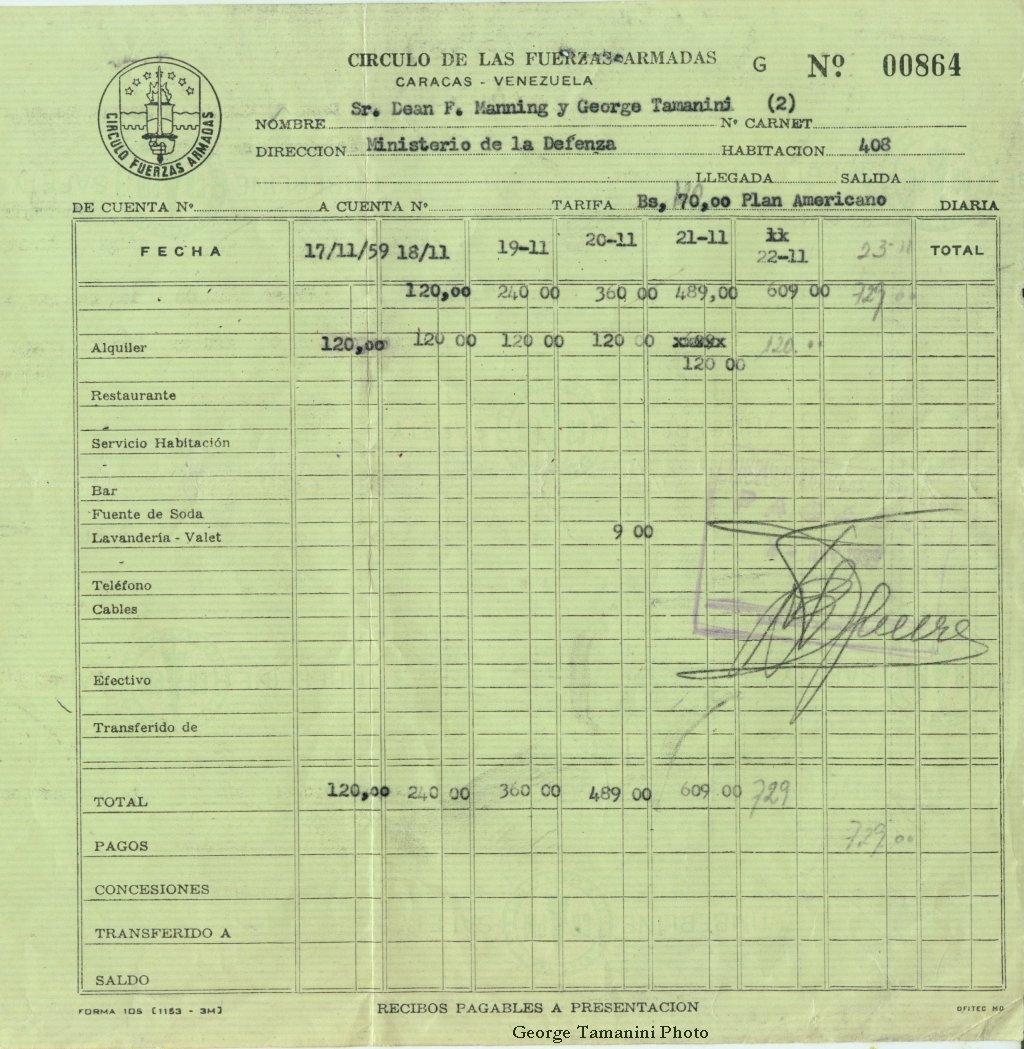 CIRCULO DE LAS FUERZAS ARMADAS G Nº 00864
CARACAS - VENEZUELA
CIRCULO FUERZAS ARMADAS
NOMBRE Sr. Dean F. Manning y George Tamanini (2) Nº CARNET
DIRECCION Ministerio de la Defenza HABITACION 408
LLEGADA SALIDA
DE CUENTA Nº A CUENTA Nº TARIFA Bs, 70,00 Plan Americano DIARIA
FECHA 17/11/59 18/11 19-11 20-11 21-11 22-11 23-11 TOTAL
120,00 240 00 360 00 489,00 609 00 729.00
Alquiler 120,00 120 00 120 00 120 00 120.00
120 00
Restaurante
Servicio Habitación
Bar
Fuente de Soda
Lavandería - Valet 9 00
Teléfono
Cables
Efectivo
Transferido de
TOTAL 120,00 240 00 360 00 489 00 609 00 729
PAGOS 729.00
CONCESIONES
TRANSFERIDO A
SALDO
FORMA 105 (1153 - 3M) RECIBOS PAGABLES A PRESENTACION OFITEC MD
George Tamanini Photo